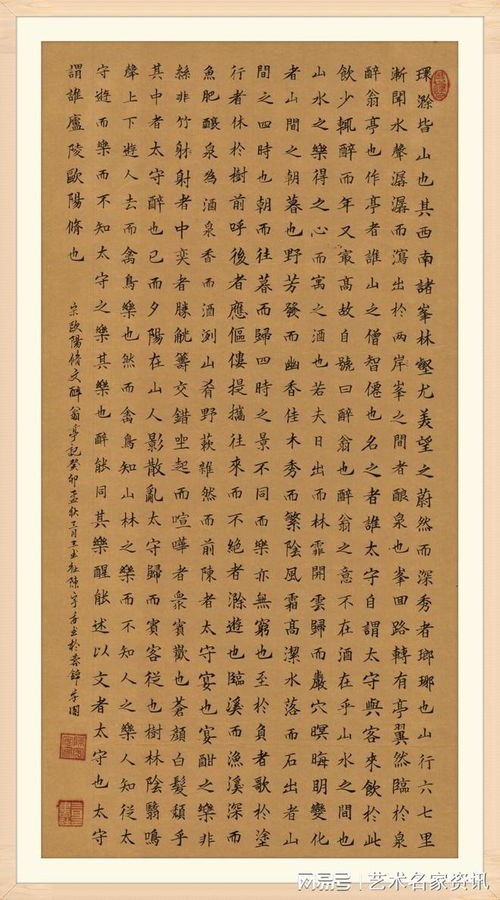 環滁皆山也其西南諸峯林壑尤美望之蔚然而深秀者瑯琊也山行六七里
漸聞水聲潺潺而瀉出於兩岸峯之間者釀泉也峯回路轉有亭翼然臨於泉
醉翁亭也作亭者誰山之僧智僊也名之者誰太守自謂太守與客來飲於此
飲少輒醉而年又最高故自號曰醉翁也醉翁之意不在酒在乎山水之間也
山水之樂得之心而寓之酒也若夫日出而林霏開雲歸而巖穴暝晦明變化
者山間之朝暮也野芳發而幽香佳木秀而繁陰風霜高潔水落而石出者山
間之四時也朝而往暮而歸四時之景不同而樂亦無窮也至於負者歌於塗
行者休於樹前呼後者應傴僂提攜往來而不絕者滁遊也臨溪而漁溪深而
魚肥釀泉為酒泉香而酒洌山肴野蔌雜然而前陳者太守宴也宴酣之樂非
絲非竹射者中奕者勝觥籌交錯坐起而喧嘩者衆賓歡也蒼顏白髮頹乎
其中者太守醉也已而夕陽在山人影散亂太守歸而賓客從也樹林陰翳鳴
聲上下遊人去而禽鳥樂也然而禽鳥知山林之樂而不知人之樂人知從太
守遊而樂而不知太守之樂其樂也醉能同其樂醒能述以文者太守也太守
謂誰廬陵歐陽脩也
宋歐陽脩文醉翁亭記癸卯孟秋
网易号 | 艺术名家资讯